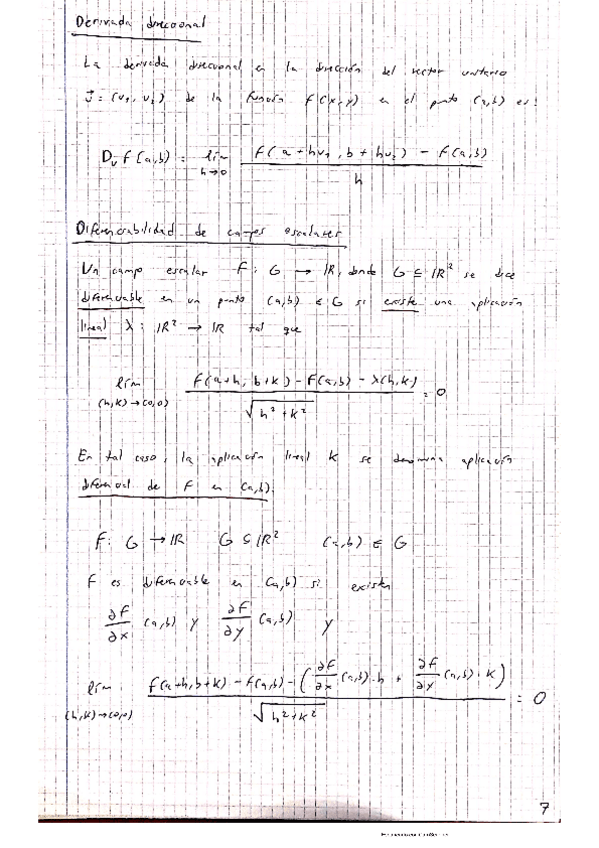 Derivada direccional
La derivada direccional en la dirección del vector unitario
v⃗ = (v₁, v₂) de la función f(x,y) en el punto (a,b) es:
Dᵥ f(a,b) = lím h→0 [f(a + hv₁, b + hv₂) - f(a,b)] / h
Diferenciabilidad de campos escalares
Un campo escalar f: G → ℝ, donde G ⊆ ℝ² se dice
diferenciable en un punto (a,b) ∈ G si existe una aplicación
lineal λ: ℝ² → ℝ tal que
lím (h,k)→(0,0) [f(a+h, b+k) - f(a,b) - λ(h,k)] / √(h²+k²) = 0
En tal caso, la aplicación lineal K se denomina aplicación
diferencial de f en (a,b).
f: G → ℝ G ⊆ ℝ² (a,b) ∈ G
f es diferenciable en (a,b) si existen
∂f/∂x (a,b) y ∂f/∂y (a,b) y
lím (h,k)→(0,0) [f(a+h, b+k) - f(a,b) - (∂f/∂x (a,b)·h + ∂f/∂y (a,b)·k)] / √(h²+k²) = 0
7